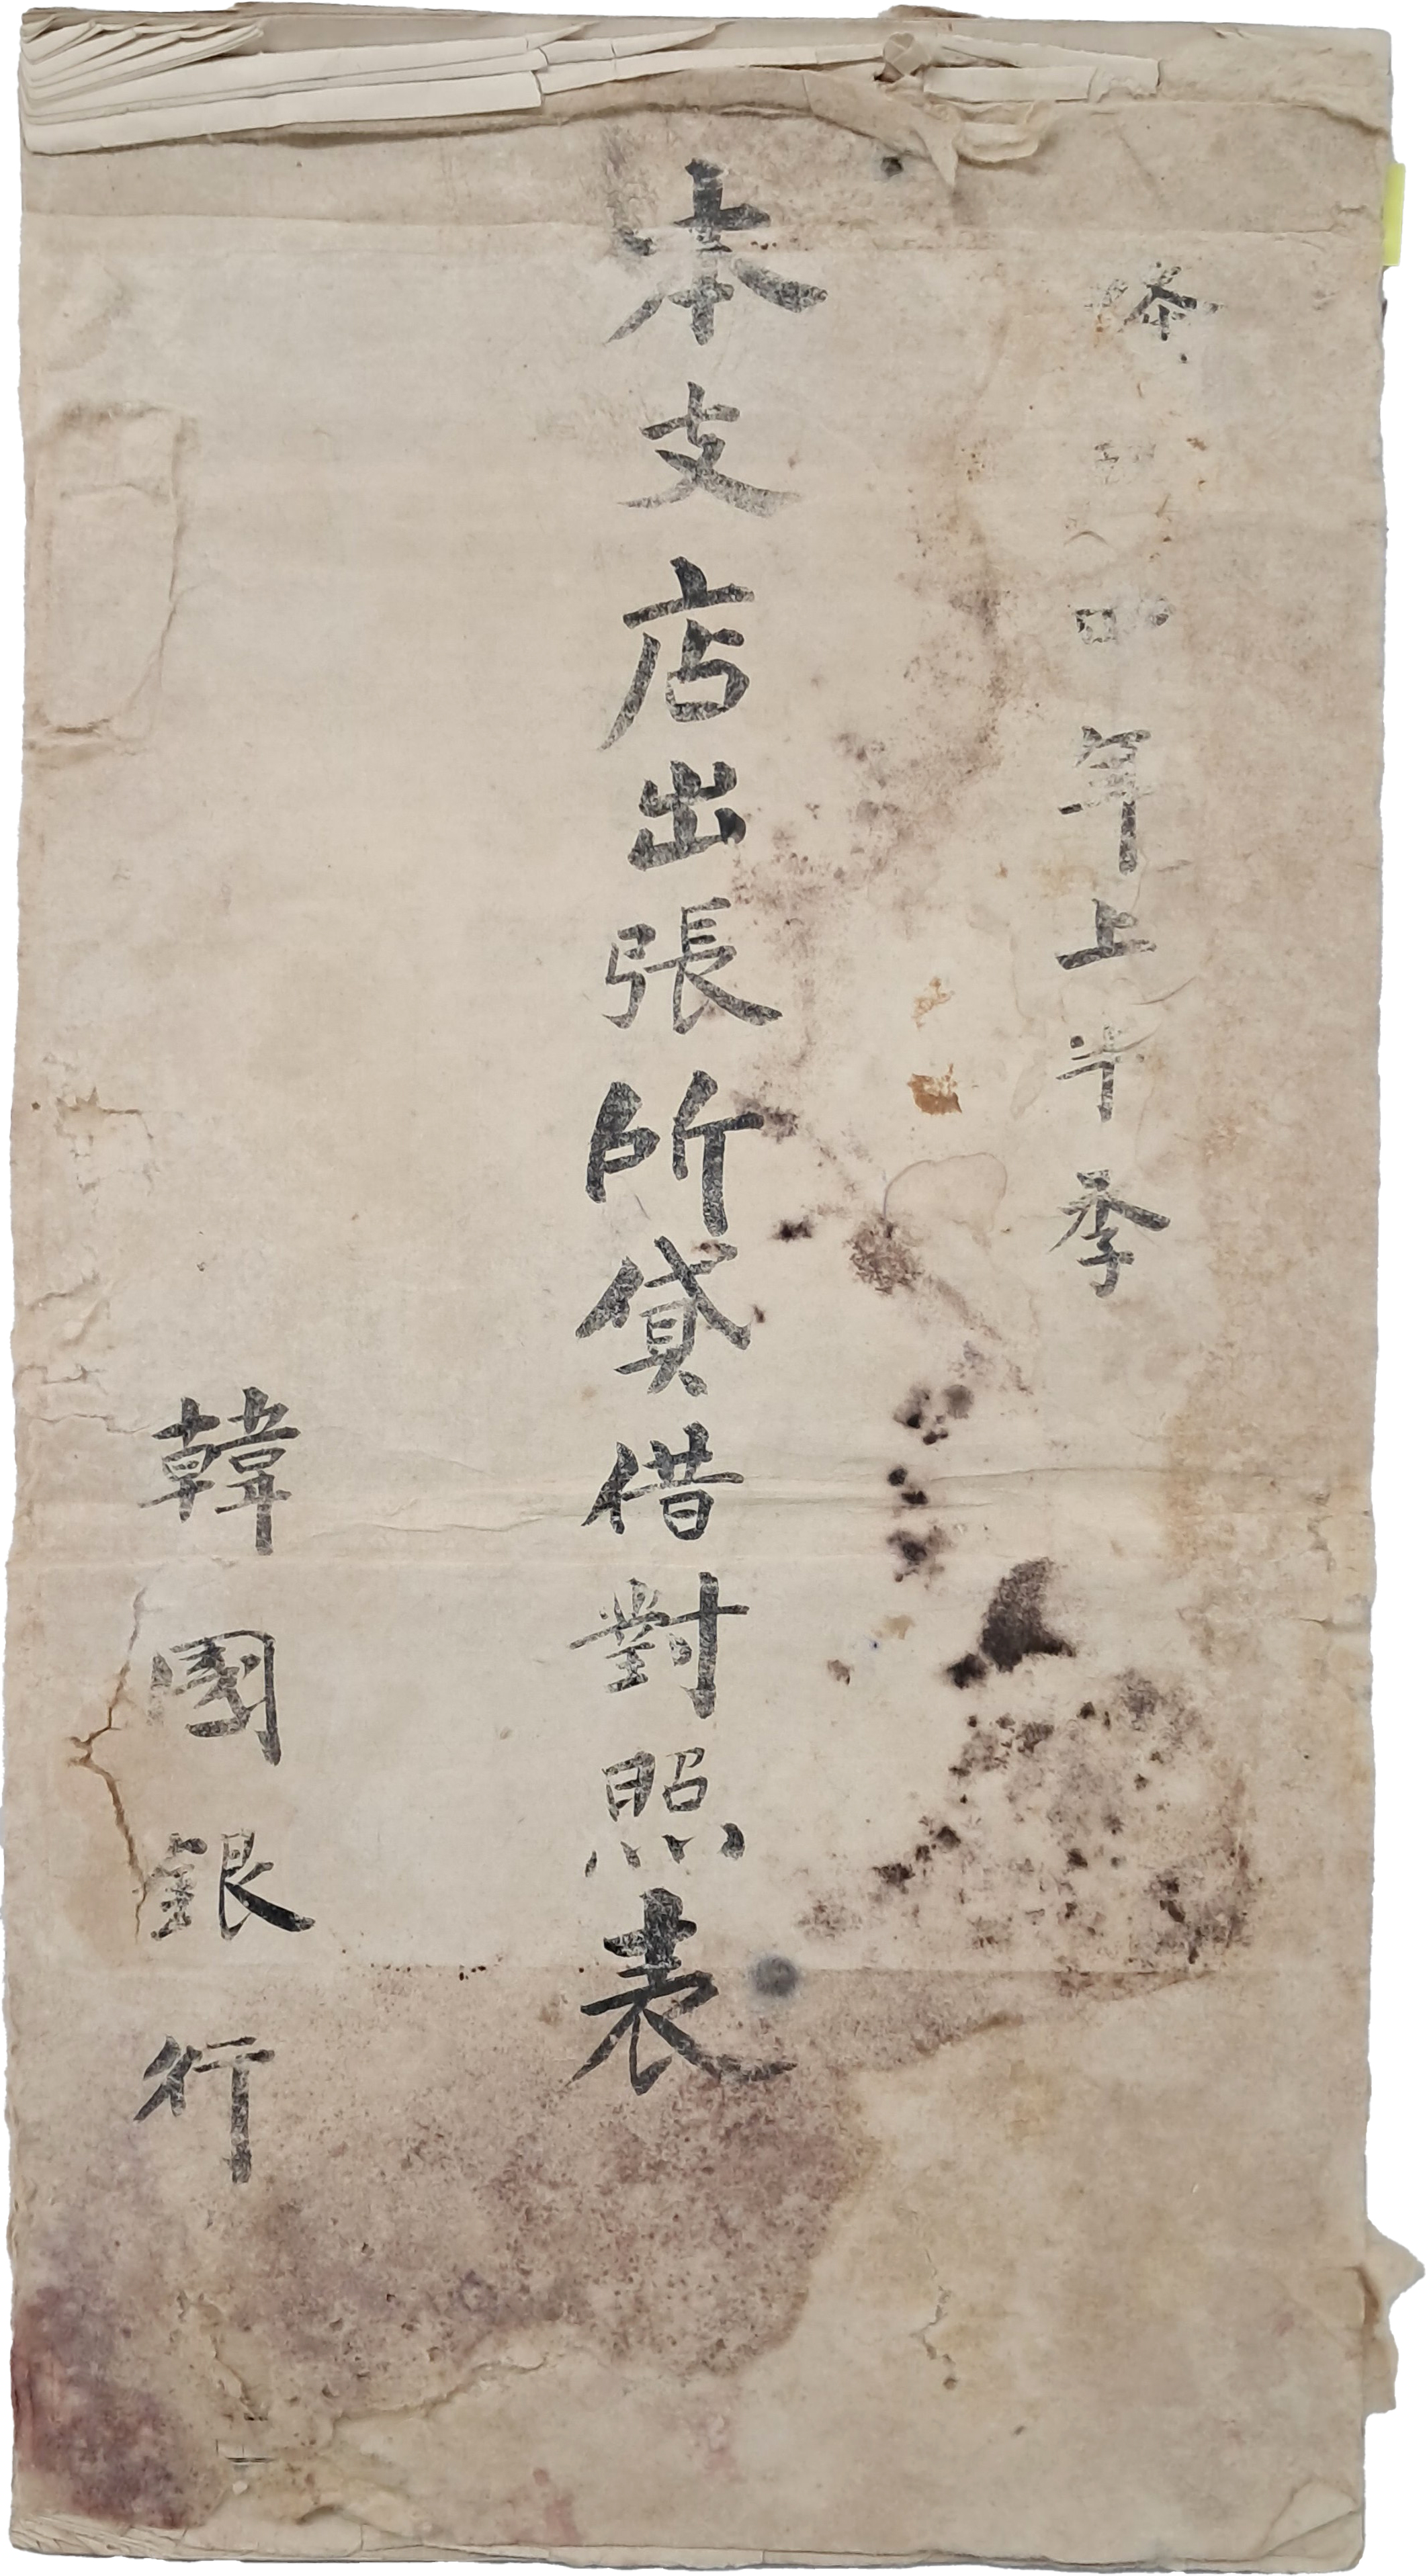 年上半季
本支店出張所貸借對照表
韓國銀行